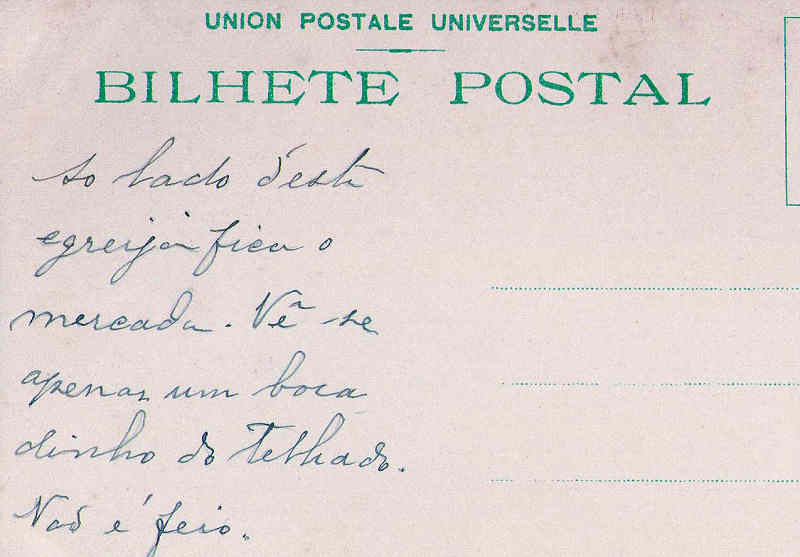 UNION POSTALE UNIVERSELLE
BILHETE POSTAL
Ao lado d'esta
egreija fica o
mercado. Vê-se
apenas um boca
dinho do telhado.
Não é feio.